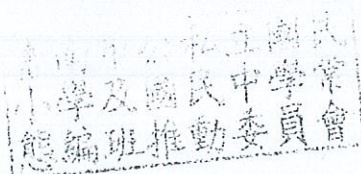 公私立國民
小學及國民中學常
態編班推動委員會